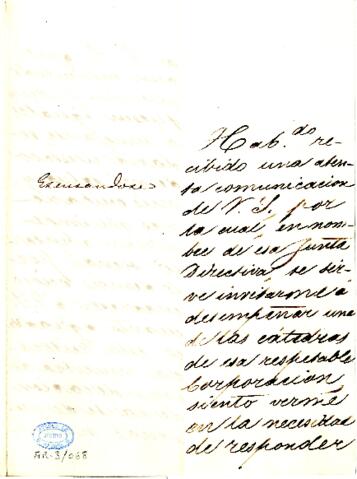 Hab.do re-
cibido una aten-
ta comunicacion
de V. S. por
la cual, en nom-
bre de esa Junta
Directiva, se sir-
ve invitarme á
desempeñar una
de las cátedras
de esa respetable
Corporacion,
siento verme
en la necesidad
de responder
Excusandose
AR-3/068